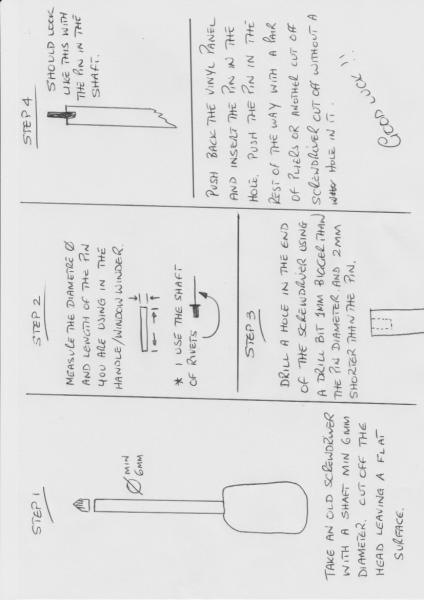 STEP 1
Ø MIN
6MM
TAKE AN OLD SCREWDRIVER
WITH A SHAFT MIN 6MM
DIAMETER. CUT OFF THE
HEAD LEAVING A FLAT
SURFACE.
STEP 2
MEASURE THE DIAMETRE Ø
AND LENGTH OF THE PIN
YOU ARE USING IN THE
HANDLE/WINDOW WINDER.
* I USE THE SHAFT
OF RIVETS
STEP 3
DRILL A HOLE IN THE END
OF THE SCREWDRIVER USING
A DRILL BIT 1MM BIGGER THAN
THE PIN DIAMETER AND 2MM
SHORTER THAN THE PIN.
STEP 4
SHOULD LOOK
LIKE THIS WITH
THE PIN IN THE
SHAFT.
PUSH BACK THE VINYL PANEL
AND INSERT THE PIN IN THE
HOLE. PUSH THE PIN IN THE
REST OF THE WAY WITH A PAIR
OF PLIERS OR ANOTHER CUT OFF
SCREWDRIVER CUT OFF WITHOUT A
HOLE IN IT.
GOOD LUCK!!